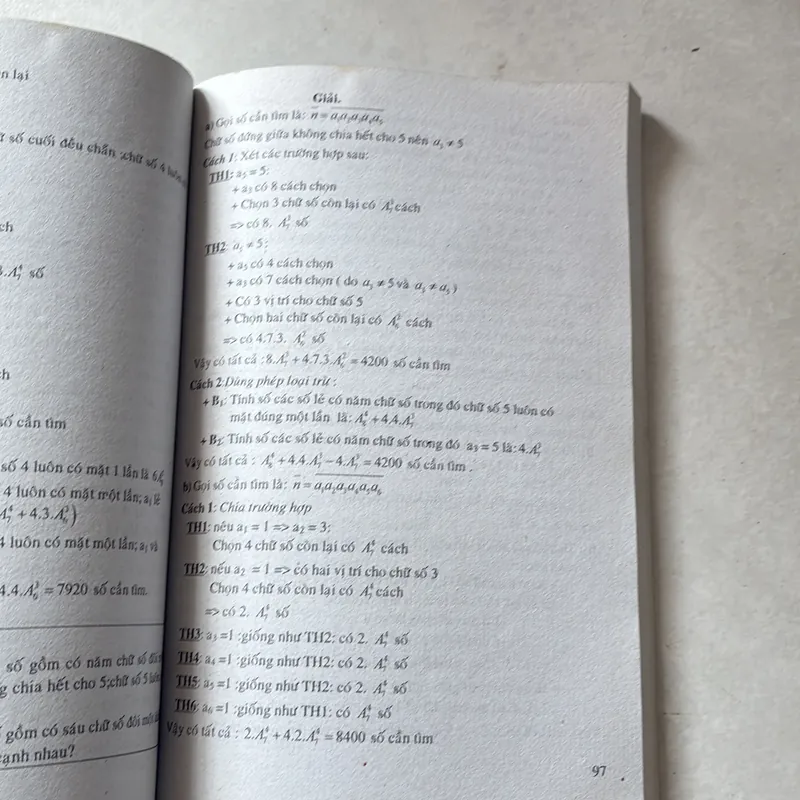 n lại
ữ số cuối đều chẵn ;chữ số 4 luôn
ch
A₇³ số
h
số cần tìm
số 4 luôn có mặt 1 lần là
4 luôn có mặt một lần; a₁ lẻ
A₇⁴ + 4.3.A₆³)
4 luôn có mặt một lần; a₁ và
4.4.A₆³ = 7920 số cần tìm.
số gồm có năm chữ số đôi
g chia hết cho 5;chữ số 5 luôn
ố gồm có sáu chữ số đôi một
cạnh nhau?
Giải.
a) Gọi số cần tìm là: n = a₁a₂a₃a₄a₅
Chữ số đứng giữa không chia hết cho 5 nên a₃ ≠ 5
Cách 1: Xét các trường hợp sau:
TH1: a₅ = 5:
+ a₃ có 8 cách chọn
+ Chọn 3 chữ số còn lại có A₇³ cách
=> có 8. A₇³ số
TH2: a₅ ≠ 5:
+ a₅ có 4 cách chọn
+ a₃ có 7 cách chọn ( do a₃ ≠ 5 và a₃ ≠ a₅ )
+ Có 3 vị trí cho chữ số 5
+ Chọn hai chữ số còn lại có A₆² cách
=> có 4.7.3. A₆² số
Vậy có tất cả :8.A₇³ + 4.7.3.A₆² = 4200 số cần tìm
Cách 2:Dùng phép loại trừ :
+ B₁: Tính số các số lẻ có năm chữ số trong đó chữ số 5 luôn có
mặt đúng một lần là: A₈⁴ + 4.4.A₇³
+ B₂: Tính số các số lẻ có năm chữ số trong đó a₃ = 5 là: 4.A₇³
Vậy có tất cả : A₈⁴ + 4.4.A₇³ − 4.A₇³ = 4200 số cần tìm .
b) Gọi số cần tìm là: n = a₁a₂a₃a₄a₅a₆
Cách 1: Chia trường hợp
TH1: nếu a₁ = 1 => a₂ = 3:
Chọn 4 chữ số còn lại có A₇⁴ cách
TH2: nếu a₂ = 1 => có hai vị trí cho chữ số 3
Chọn 4 chữ số còn lại có A₇⁴ cách
=> có 2. A₇⁴ số
TH3: a₃ =1 :giống như TH2: có 2. A₇⁴ số
TH4: a₄ =1 :giống như TH2: có 2. A₇⁴ số
TH5: a₅ =1 :giống như TH2: có 2. A₇⁴ số
TH6: a₆ =1 :giống như TH1: có A₇⁴ số
Vậy có tất cả : 2.A₇⁴ + 4.2.A₇⁴ = 8400 số cần tìm
97